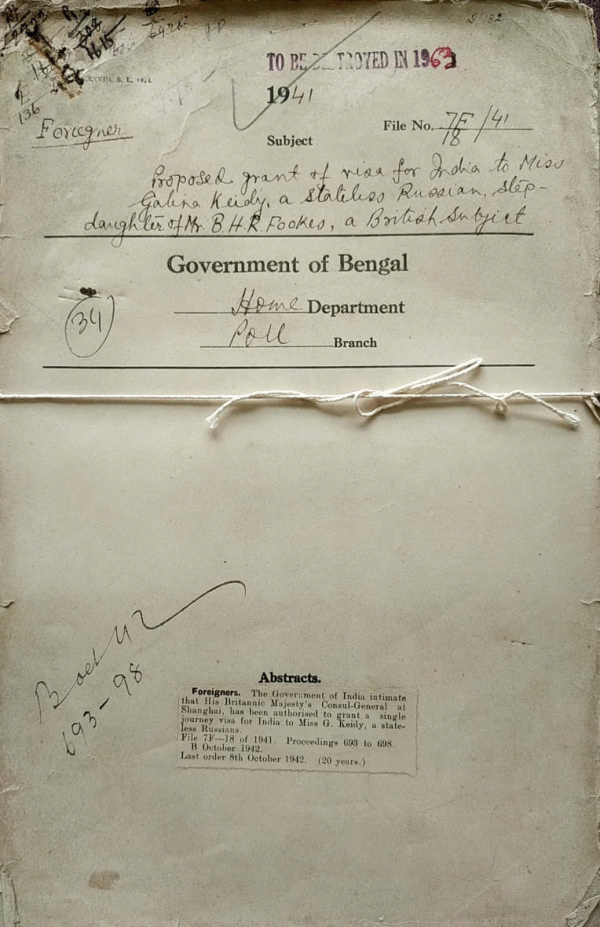 TO BE DESTROYED IN 1963
1941
Foreigner
File No. 7F/18 /41
Subject
Proposed grant of visa for India to Miss
Galina Keidy, a Stateless Russian, step-
daughter of Mr. B H R Fookes, a British Subject
Government of Bengal
34
Home Department
Poll Branch
B Oct 42
693-98
Abstracts.
Foreigners. The Government of India intimate
that His Britannic Majesty's Consul-General at
Shanghai, has been authorised to grant a single
journey visa for India to Miss G. Keidy, a state-
less Russians.
File 7F—18 of 1941. Proceedings 693 to 698.
B October 1942.
Last order 8th October 1942. (20 years.)